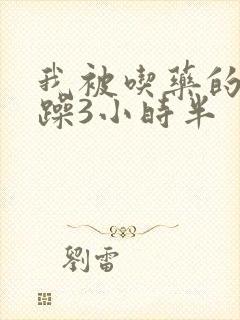 我被喫藥的
躁3小時半
劉雷